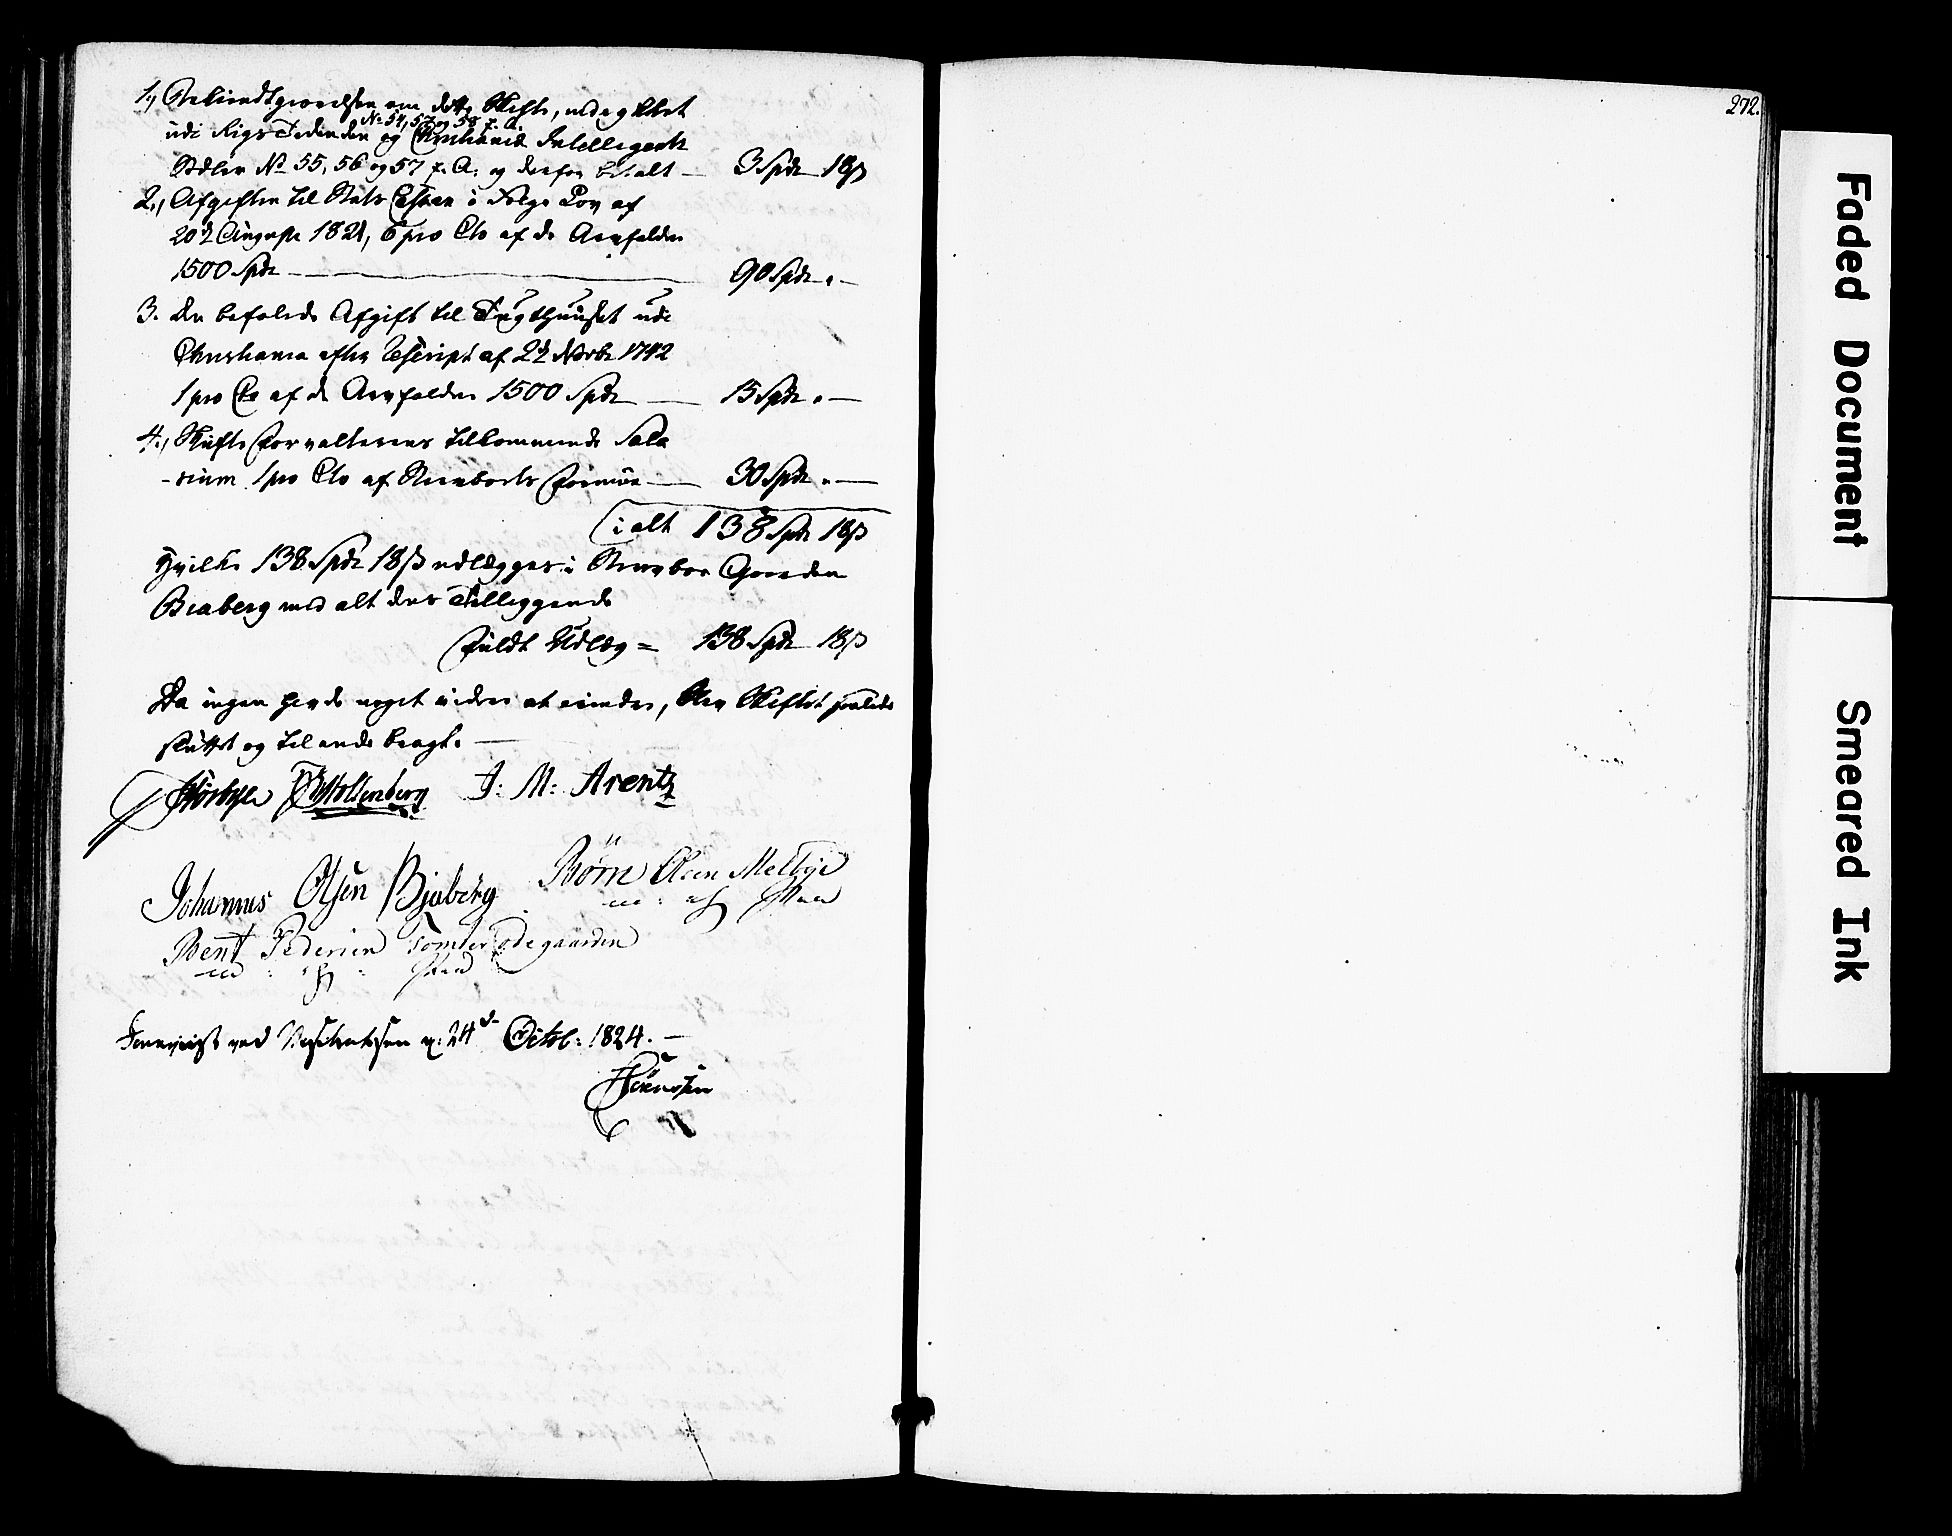 1, Bekiendtgiørelsen om dette Skifte, indrykket
No 54, 57 og 58 f. A.
udi Rigs Tidenden og Christiania Intelligents
Sedler No 55, 56 og 57 f. A. og derfor betalt — 3 Spdr 18 β
2., Afgiften til Stats Cassen i Følge Lov af
20de August 1821, 6 pro Cto af de Arvfaldne
1500 Spdr — 90 Spdr " —
3. den befalede Afgift til Tugthuuset udi
Christiania efter Rescript af 2den Novbr 1742
1 pro Cto af de Arvfaldne 1500 Spdr — 15 Spdr " —
4., Skifte Forvalterens tilkommende Sala
-rium 1 pro Cto af Sterboets Formue — 30 Spdr " —
i alt 138 Spdr 18 β
Hvilke 138 Spdr 18 β udlægges i Stervboe Gaarden
Biaberg med alt dens Tilliggende
Fuldt Udlæg = 138 Spdr 18 β
Da ingen havde noget videre at erindre, blev Skiftet saaledes
sluttet og til ende bragt. —
J: M: Arentz
Johannes Olsen Bjaberg
Børn Olsen Melbye
m: : p Pen
Bent Pedersen Tomter ødegaarden
m : p : Pen
ved : 24de Octob: 1824. —
272.
Faded Document
Smeared Ink